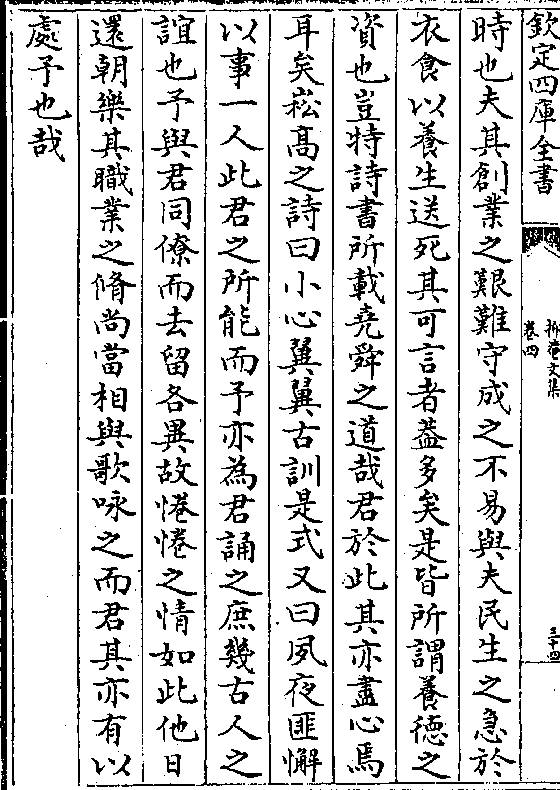 欽定四庫全書
卷四
三十四
時也夫其創業之艱難守成之不易與夫民生之急於
衣食以養生送死其可言者葢多矣是皆所謂養德之
資也豈特詩書所載堯舜之道哉君於此其亦盡心焉
耳矣崧髙之詩曰小心翼翼古訓是式又曰夙夜匪懈
以事一人此君之所能而予亦為君誦之庶幾古人之
誼也予與君同僚而去留各異故惓惓之情如此他日
還朝樂其職業之脩尚當相與歌咏之而君其亦有以
處予也哉